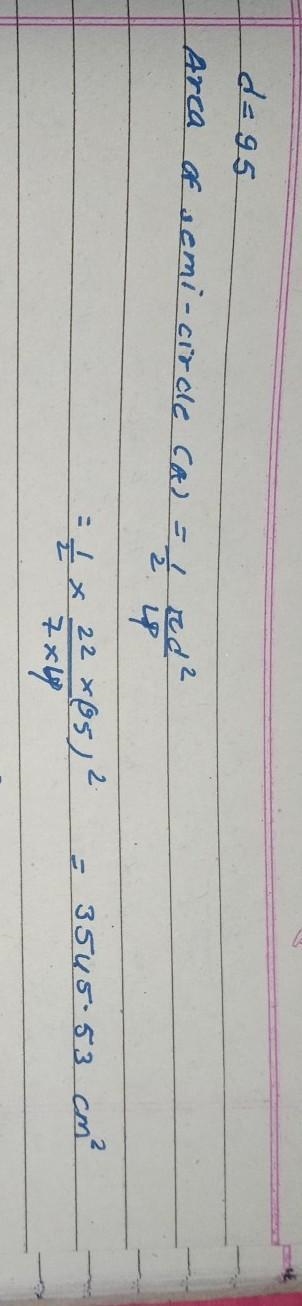 d = 95
Area of semi-circle (A) = 1/2 πd²/4
= 1/2 × 22 × (95)²/7 × 4 = 3545.53 cm²